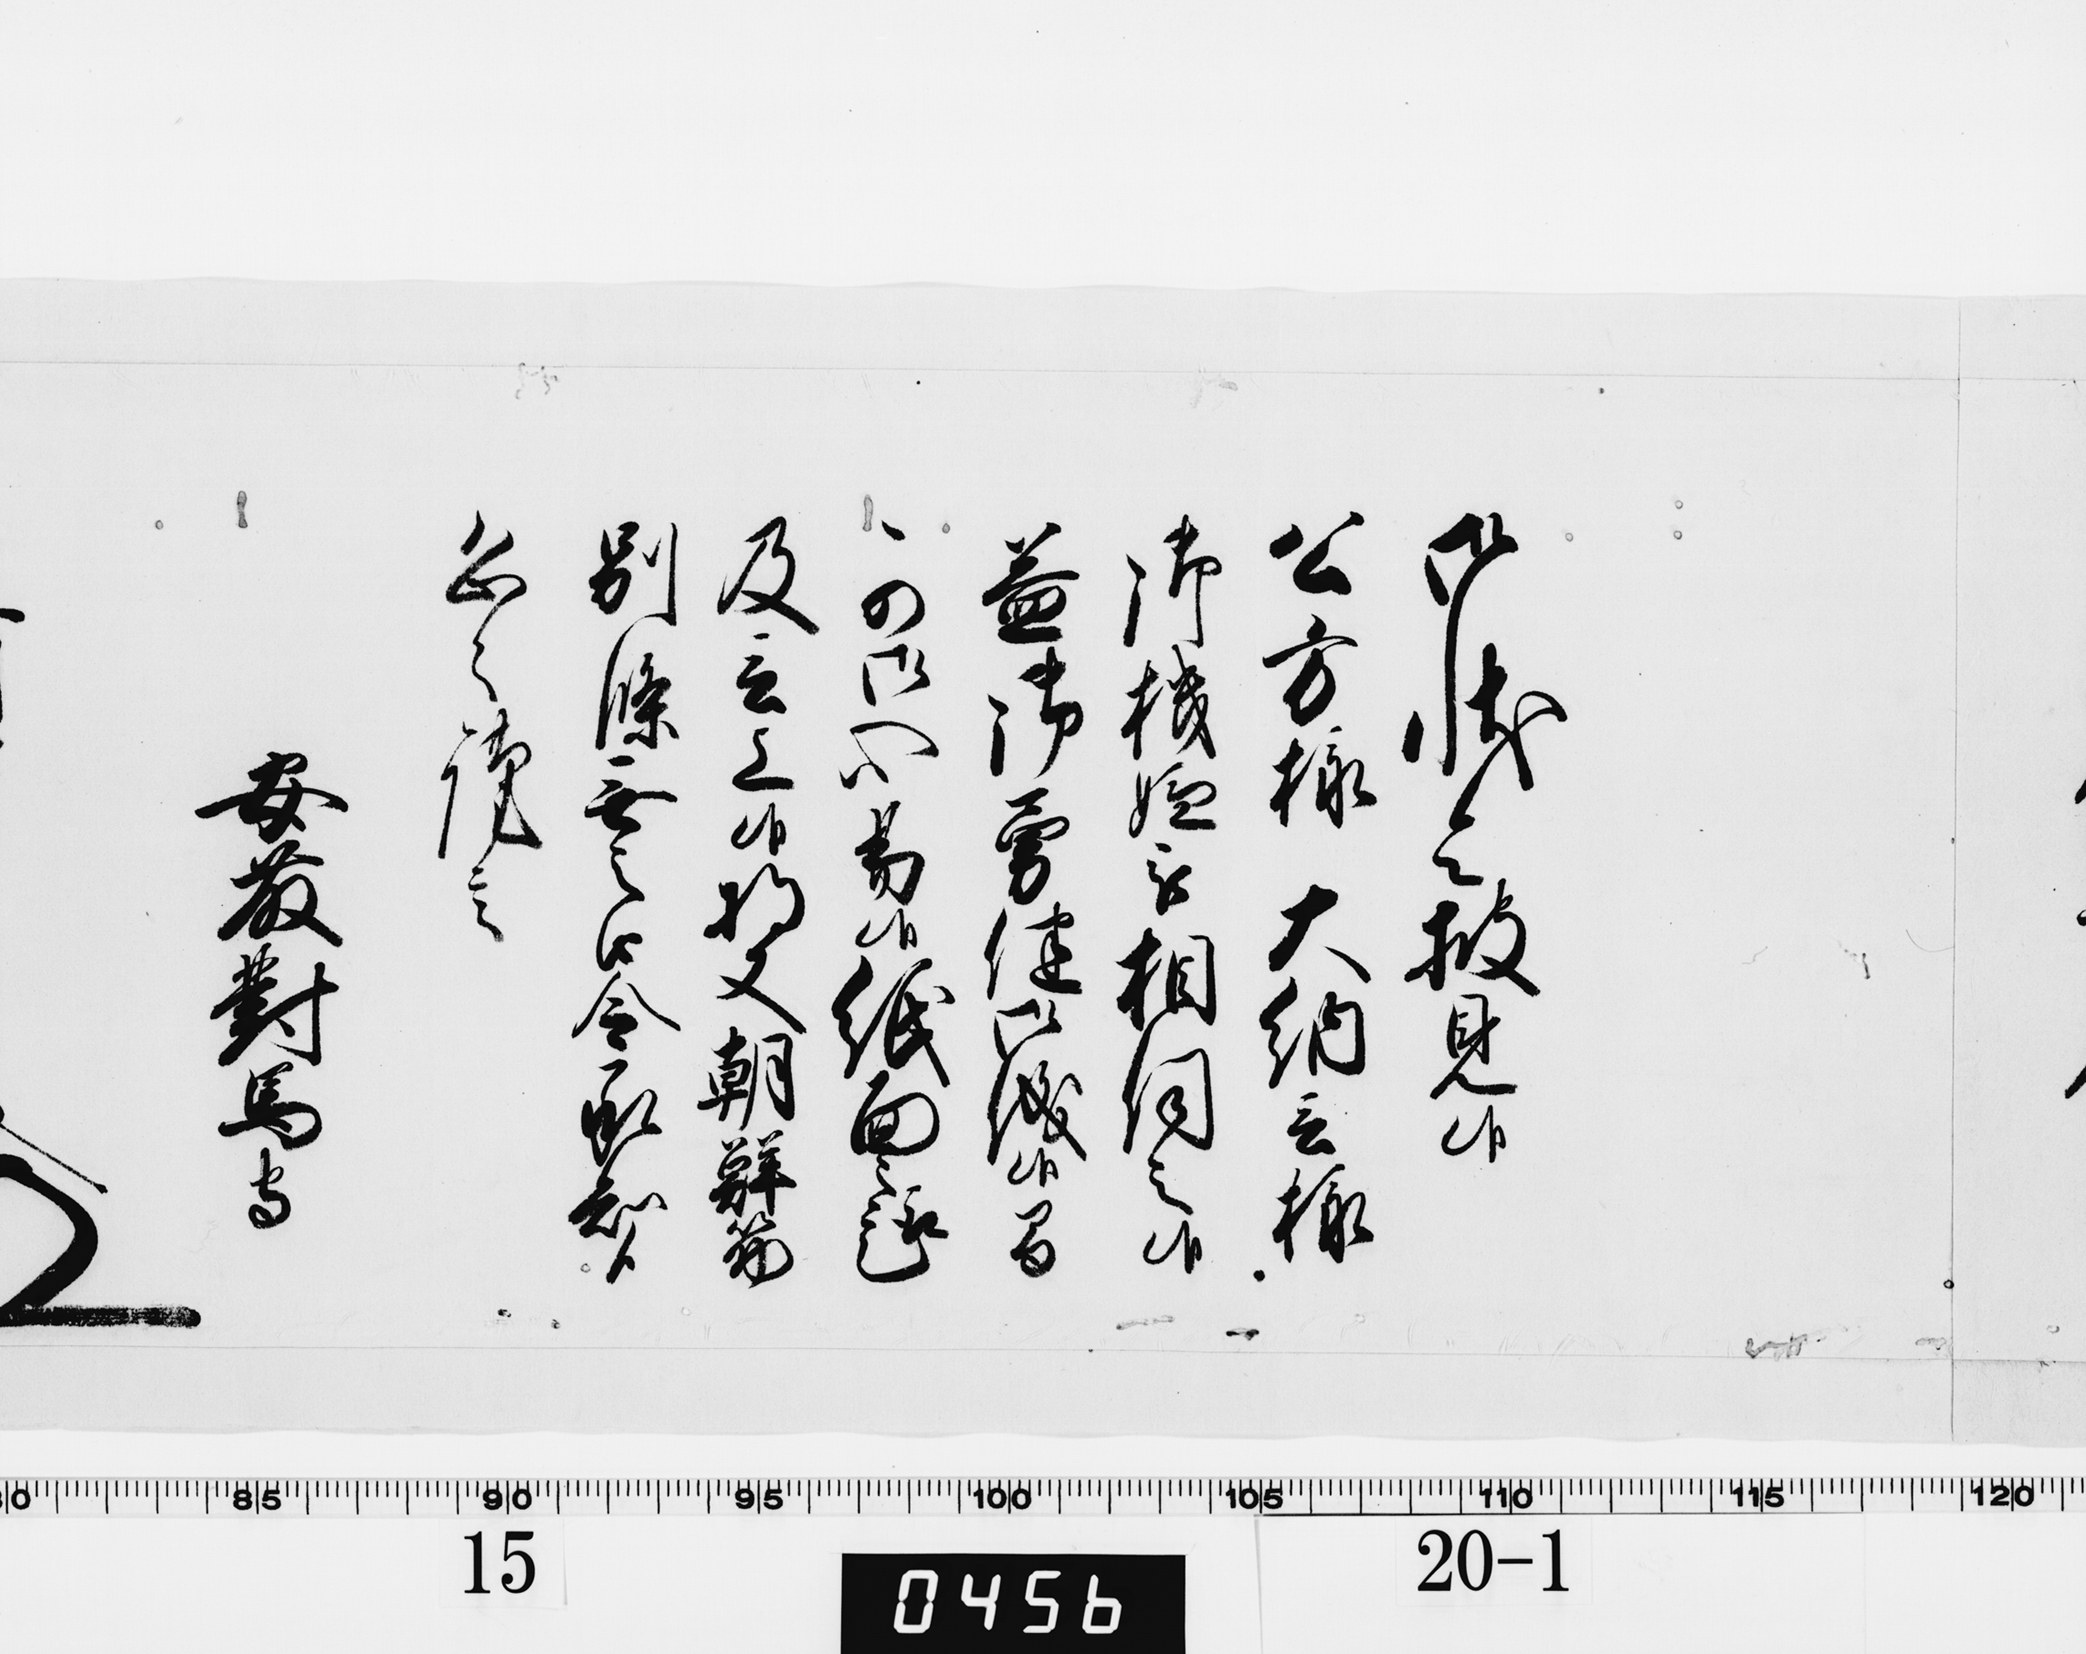 御状令披見候
公方様 大納言様
御機嫌被相伺之候
益御勇健御儀候間
可御心易候紙面之趣
及言上候将又朝鮮筋
別條無之 令承知候
恐々謹言
安藤對馬守
80 85 90 95 100 105 110 115 120
15
0456
20-1